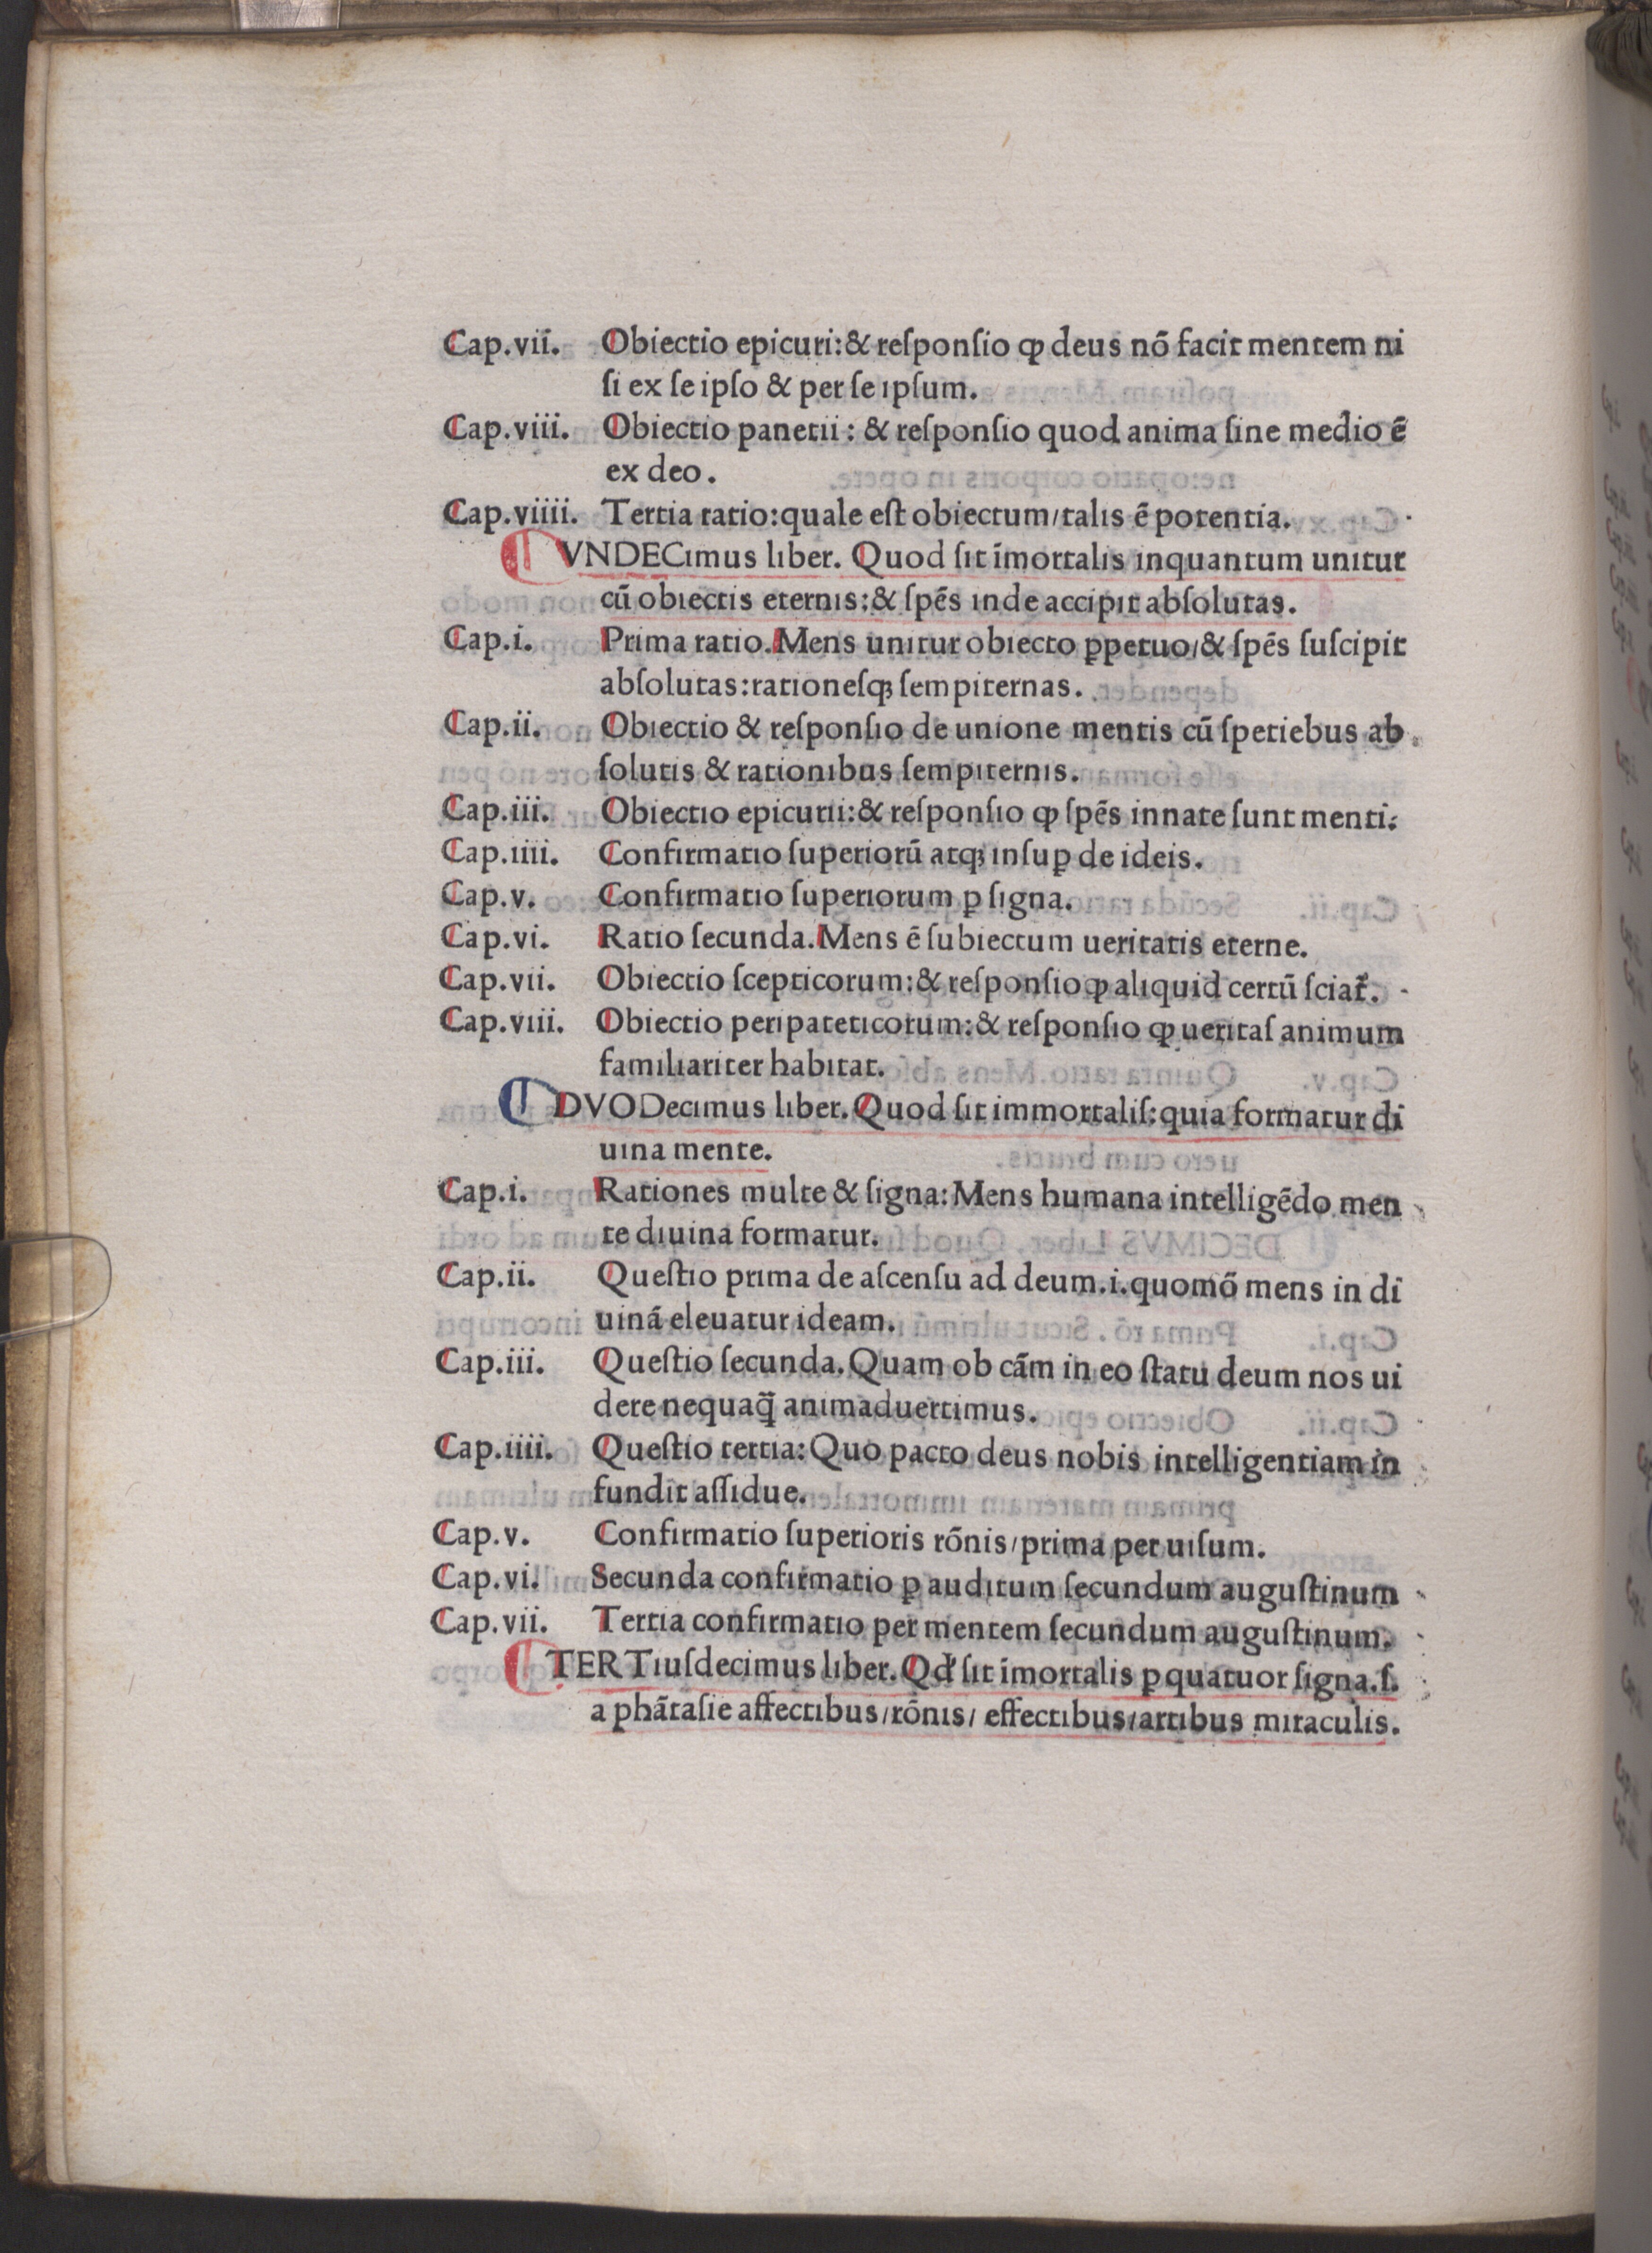 Cap.vii. Obiectio epicuri:& reſponſio ꝙ deus nō facit mentem ni
ſi ex ſe ipſo & per ſe ipſum.
Cap.viii. Obiectio panetii: & reſponſio quod anima ſine medio ē
ex deo.
Cap.viiii. Tertia ratio:quale eſt obiectum/talis ē potentia.
VNDECimus liber. Quod ſit īmortalis inquantum unitur
cū obiectis eternis:& ſpēs inde accipit abſolutas.
Cap.i. Prima ratio.Mens unitur obiecto ꝑpetuo/& ſpēs ſuſcipit
abſolutas:rationeſqꝫ ſempiternas.
Cap.ii. Obiectio & reſponſio de unione mentis cū ſpetiebus ab
ſolutis & rationibus ſempiternis.
Cap.iii. Obiectio epicurii:& reſponſio ꝙ ſpēs innate ſunt menti.
Cap.iiii. Confirmatio ſuperiorū atqꝫ inſuꝑ de ideis.
Cap.v. Confirmatio ſuperiorum ꝑ ſigna.
Cap.vi. Ratio ſecunda.Mens ē ſubiectum ueritatis eterne.
Cap.vii. Obiectio ſcepticorum:& reſponſio ꝙ aliquid certū ſciat᷑.
Cap.viii. Obiectio peripateticorum:& reſponſio ꝙ ueritaſ animum
familiariter habitat.
DVODecimus liber.Quod ſit immortaliſ:quia formatur di
uina mente.
Cap.i. Rationes multe & ſigna:Mens humana intelligēdo men
te diuina formatur.
Cap.ii. Queſtio prima de aſcenſu ad deum.i.quomō mens in di
uinā eleuatur ideam.
Cap.iii. Queſtio ſecunda.Quam ob cām in eo ſtatu deum nos ui
dere nequaq̄ animaduertimus.
Cap.iiii. Queſtio tertia:Quo pacto deus nobis intelligentiam in
fundit aſſidue.
Cap.v. Confirmatio ſuperioris rōnis/prima per uiſum.
Cap.vi. Secunda confirmatio ꝑ auditum ſecundum auguſtinum
Cap.vii. Tertia confirmatio per mentem ſecundum auguſtinum.
TERTiuſdecimus liber.Qđ ſit īmortalis ꝑ quatuor ſigna.ſ.
a phātaſie affectibus/rōnis/ effectibus/artibus miraculis.